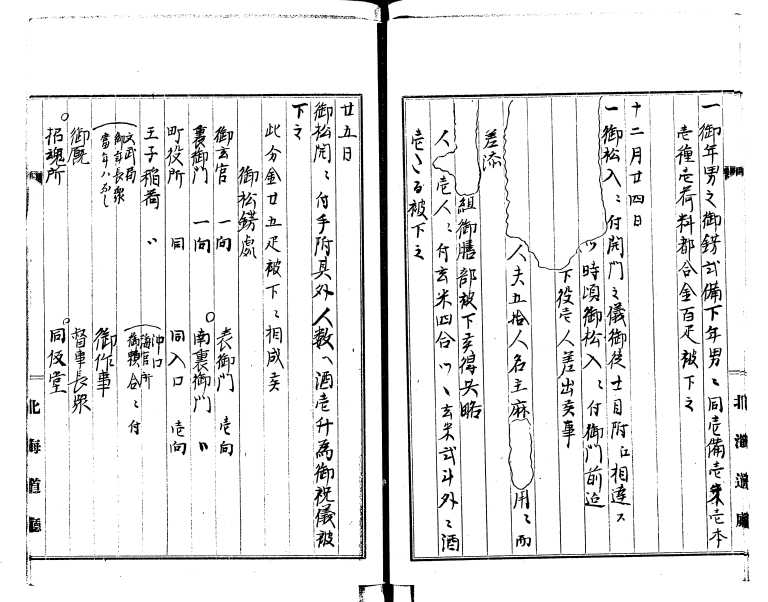 一御年男之御鏡弐備下年男ニ同壱備壱朱壱本
壱種壱荷料都合金百疋被下之
十二月廿四日
一御松入ニ付開門之儀御徒士目附江相達ス
〃時頃御松入ニ付御門前迄
下役壱人差出候事
人夫五拾人名主麻
用ニ而
差添
組御膳部被下候得共略
人壱人ニ付玄米四合〃ヽ玄米弐斗外ニ酒
壱ツヽ被下之
北海道廳
廿五日
御松開ニ付手附其外人数ヘ酒壱升為御祝儀被
下之
此分金廿五疋被下ニ相成候
御松錺處
御玄官 一向 表御門 壱向
裏御門 一向 ○南裏御門 〃
町役所 同 同入口 壱向
王子稲荷 〃
沖口
海官所
文武局
御年長衆
當年ハなし
御頼合ニ付
御厩 御作事
督事長衆
○招魂所 ○同仮堂
北海道廳